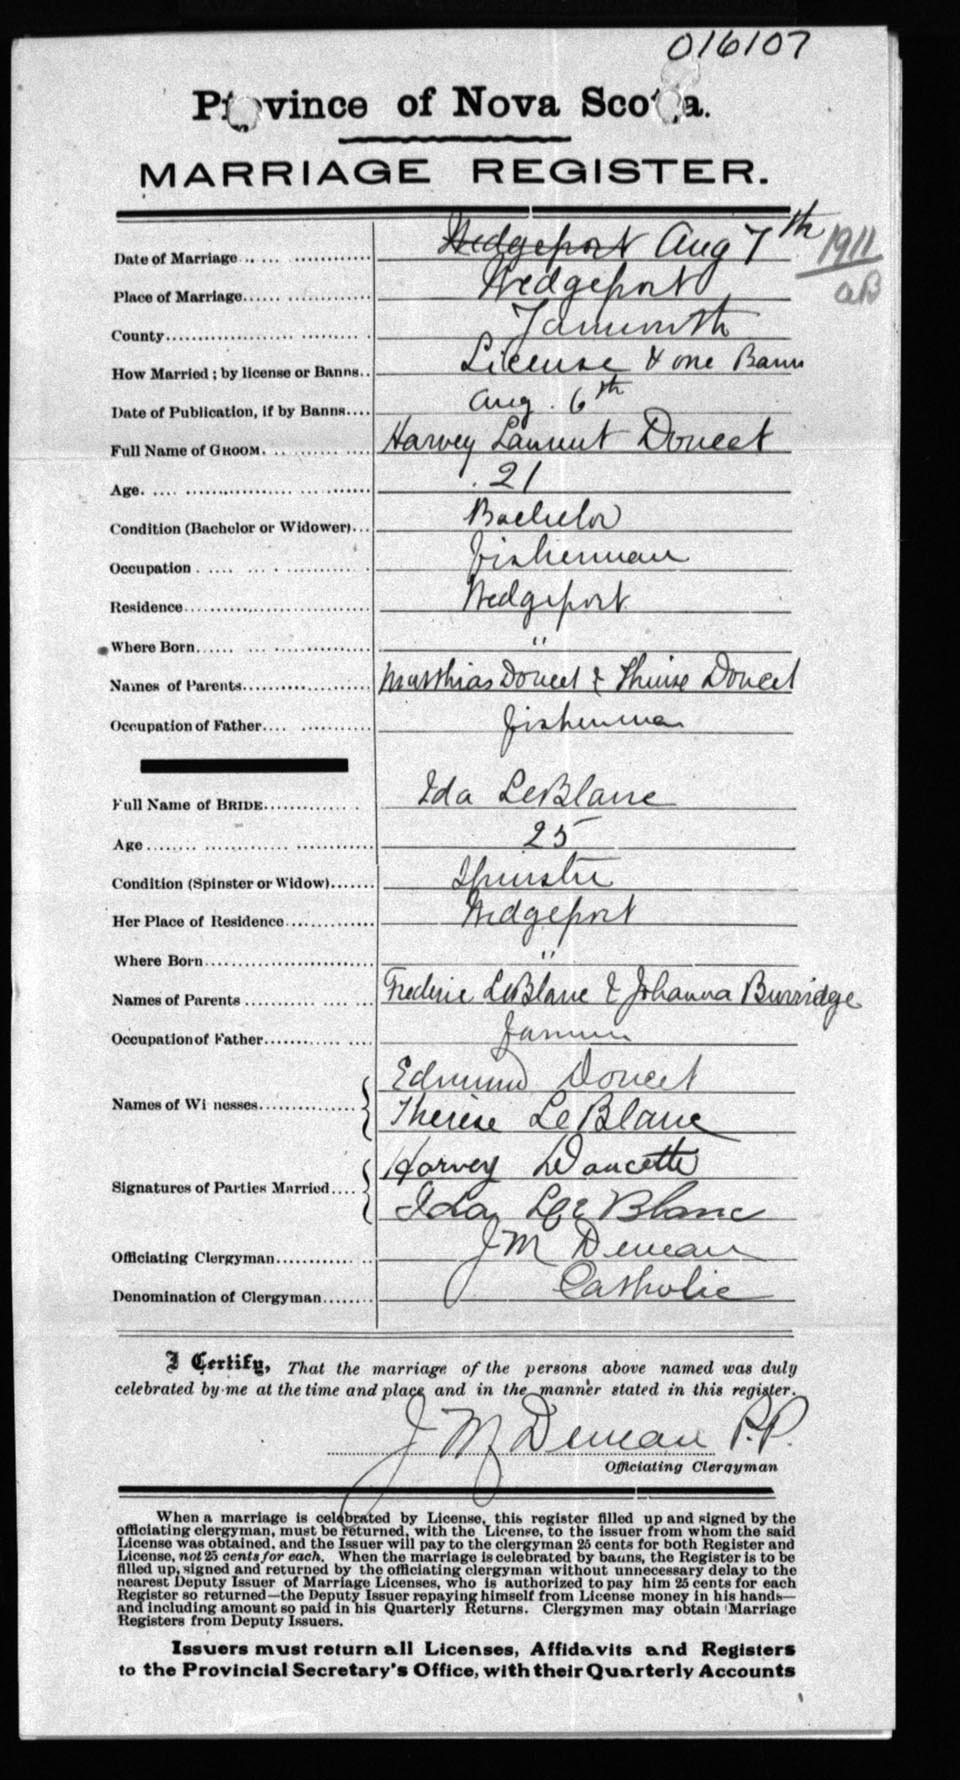 016107
Province of Nova Scotia.
MARRIAGE REGISTER.
Date of Marriage Wedgeport Aug 7th 1911
aB
Place of Marriage Wedgeport
County Yarmouth
How Married; by license or Banns License & one Bann
Date of Publication, if by Banns Aug. 6th
Full Name of GROOM Harvey Laurent Doucet
Age 21
Condition (Bachelor or Widower) Bachelor
Occupation fisherman
Residence Wedgeport
Where Born "
Names of Parents Matthias Doucet & Thérèse Doucet
Occupation of Father fisherman
Full Name of BRIDE Ida LeBlanc
Age 25
Condition (Spinster or Widow) Spinster
Her Place of Residence Wedgeport
Where Born "
Names of Parents Frederic LeBlanc & Johanna Burridge
Occupation of Father farmer
Names of Witnesses Edmund Doucet
Therèse LeBlanc
Signatures of Parties Married Harvey Doucette
Ida Lee Blanc
Officiating Clergyman J M
Denomination of Clergyman Catholic
I Certify, That the marriage of the persons above named was duly
celebrated by me at the time and place and in the manner stated in this register.
J M P.P.
Officiating Clergyman
When a marriage is celebrated by License, this register filled up and signed by the
officiating clergyman, must be returned, with the License, to the issuer from whom the said
License was obtained, and the Issuer will pay to the clergyman 25 cents for both Register and
License, not 25 cents for each. When the marriage is celebrated by banns, the Register is to be
filled up, signed and returned by the officiating clergyman without unnecessary delay to the
nearest Deputy Issuer of Marriage Licenses, who is authorized to pay him 25 cents for each
Register so returned—the Deputy Issuer repaying himself from License money in his hands—
and including amount so paid in his Quarterly Returns. Clergymen may obtain Marriage
Registers from Deputy Issuers.
Issuers must return all Licenses, Affidavits and Registers
to the Provincial Secretary's Office, with their Quarterly Accounts